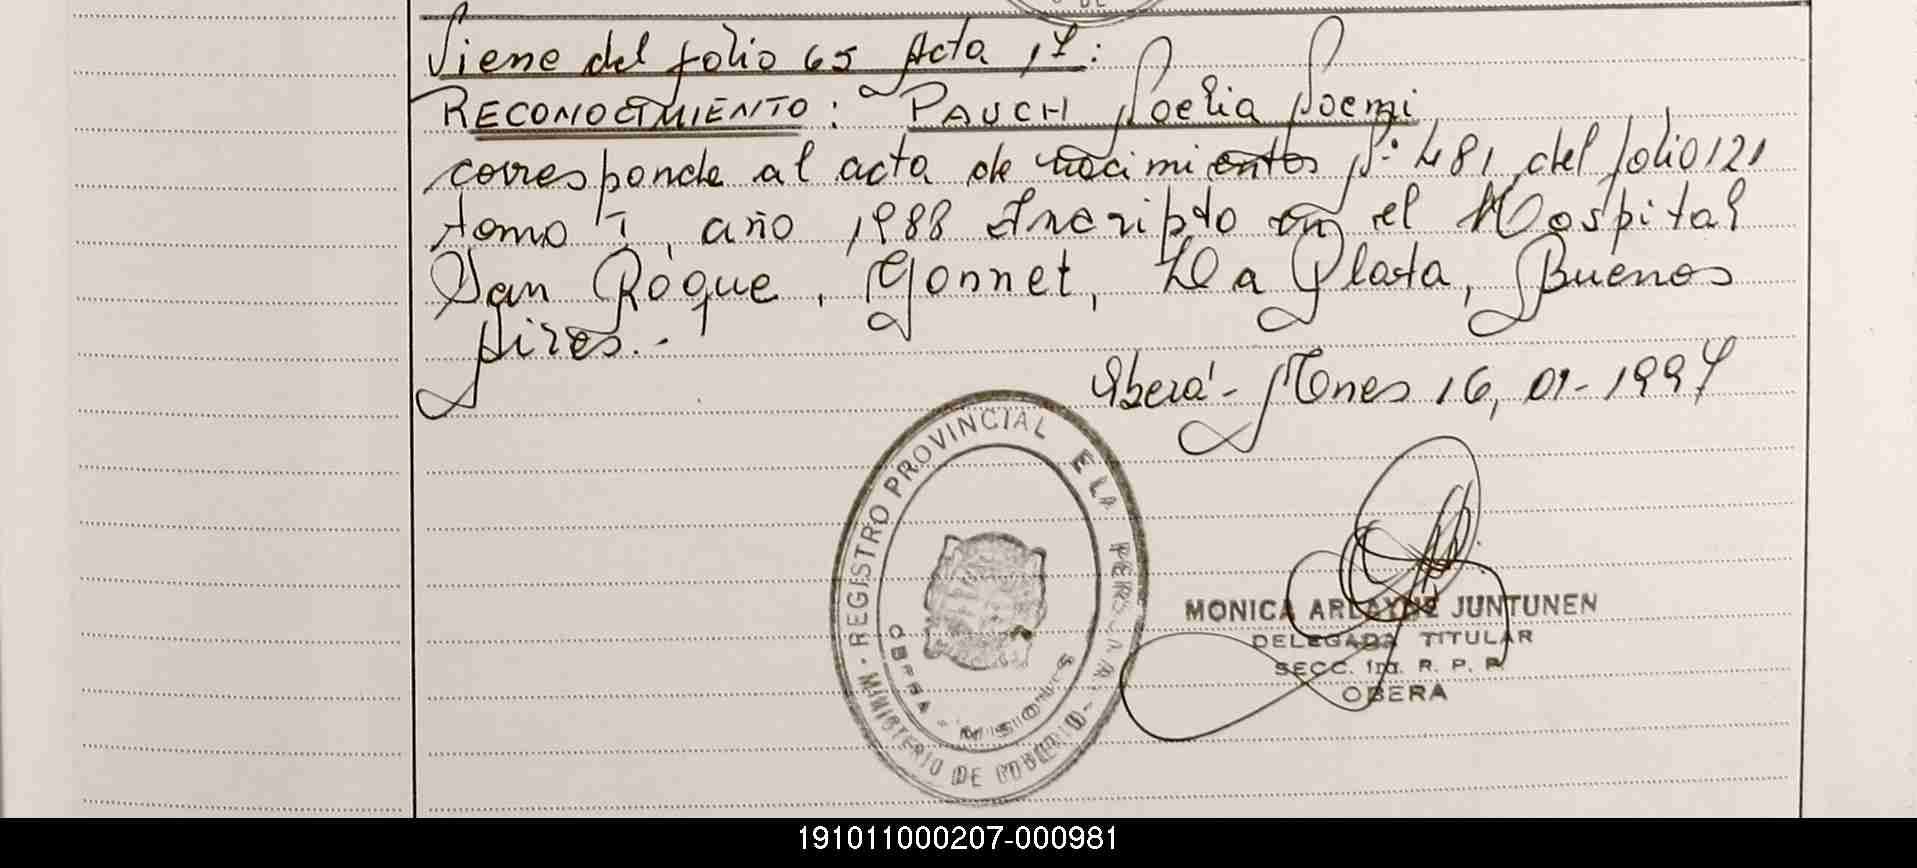 Viene del folio 65 Acta 17:
RECONOCIMIENTO: PAUCH Noelia Noemi
corresponde al acta de nacimientos Nº 481 del folio 121
tomo I, año 1988 Incripto en el Hospital
San Roque, Gonnet, La Plata, Buenos
Aires.-
Oberá - Mnes 16, 01-1997
REGISTRO PROVINCIAL DE LA PERSONAS
MINISTERIO DE GOBIERNO
OBERA - MISIONES
MONICA ARLAYNE JUNTUNEN
DELEGADA TITULAR
SECC. 1ra. R. P. P.
OBERA
191011000207-000981